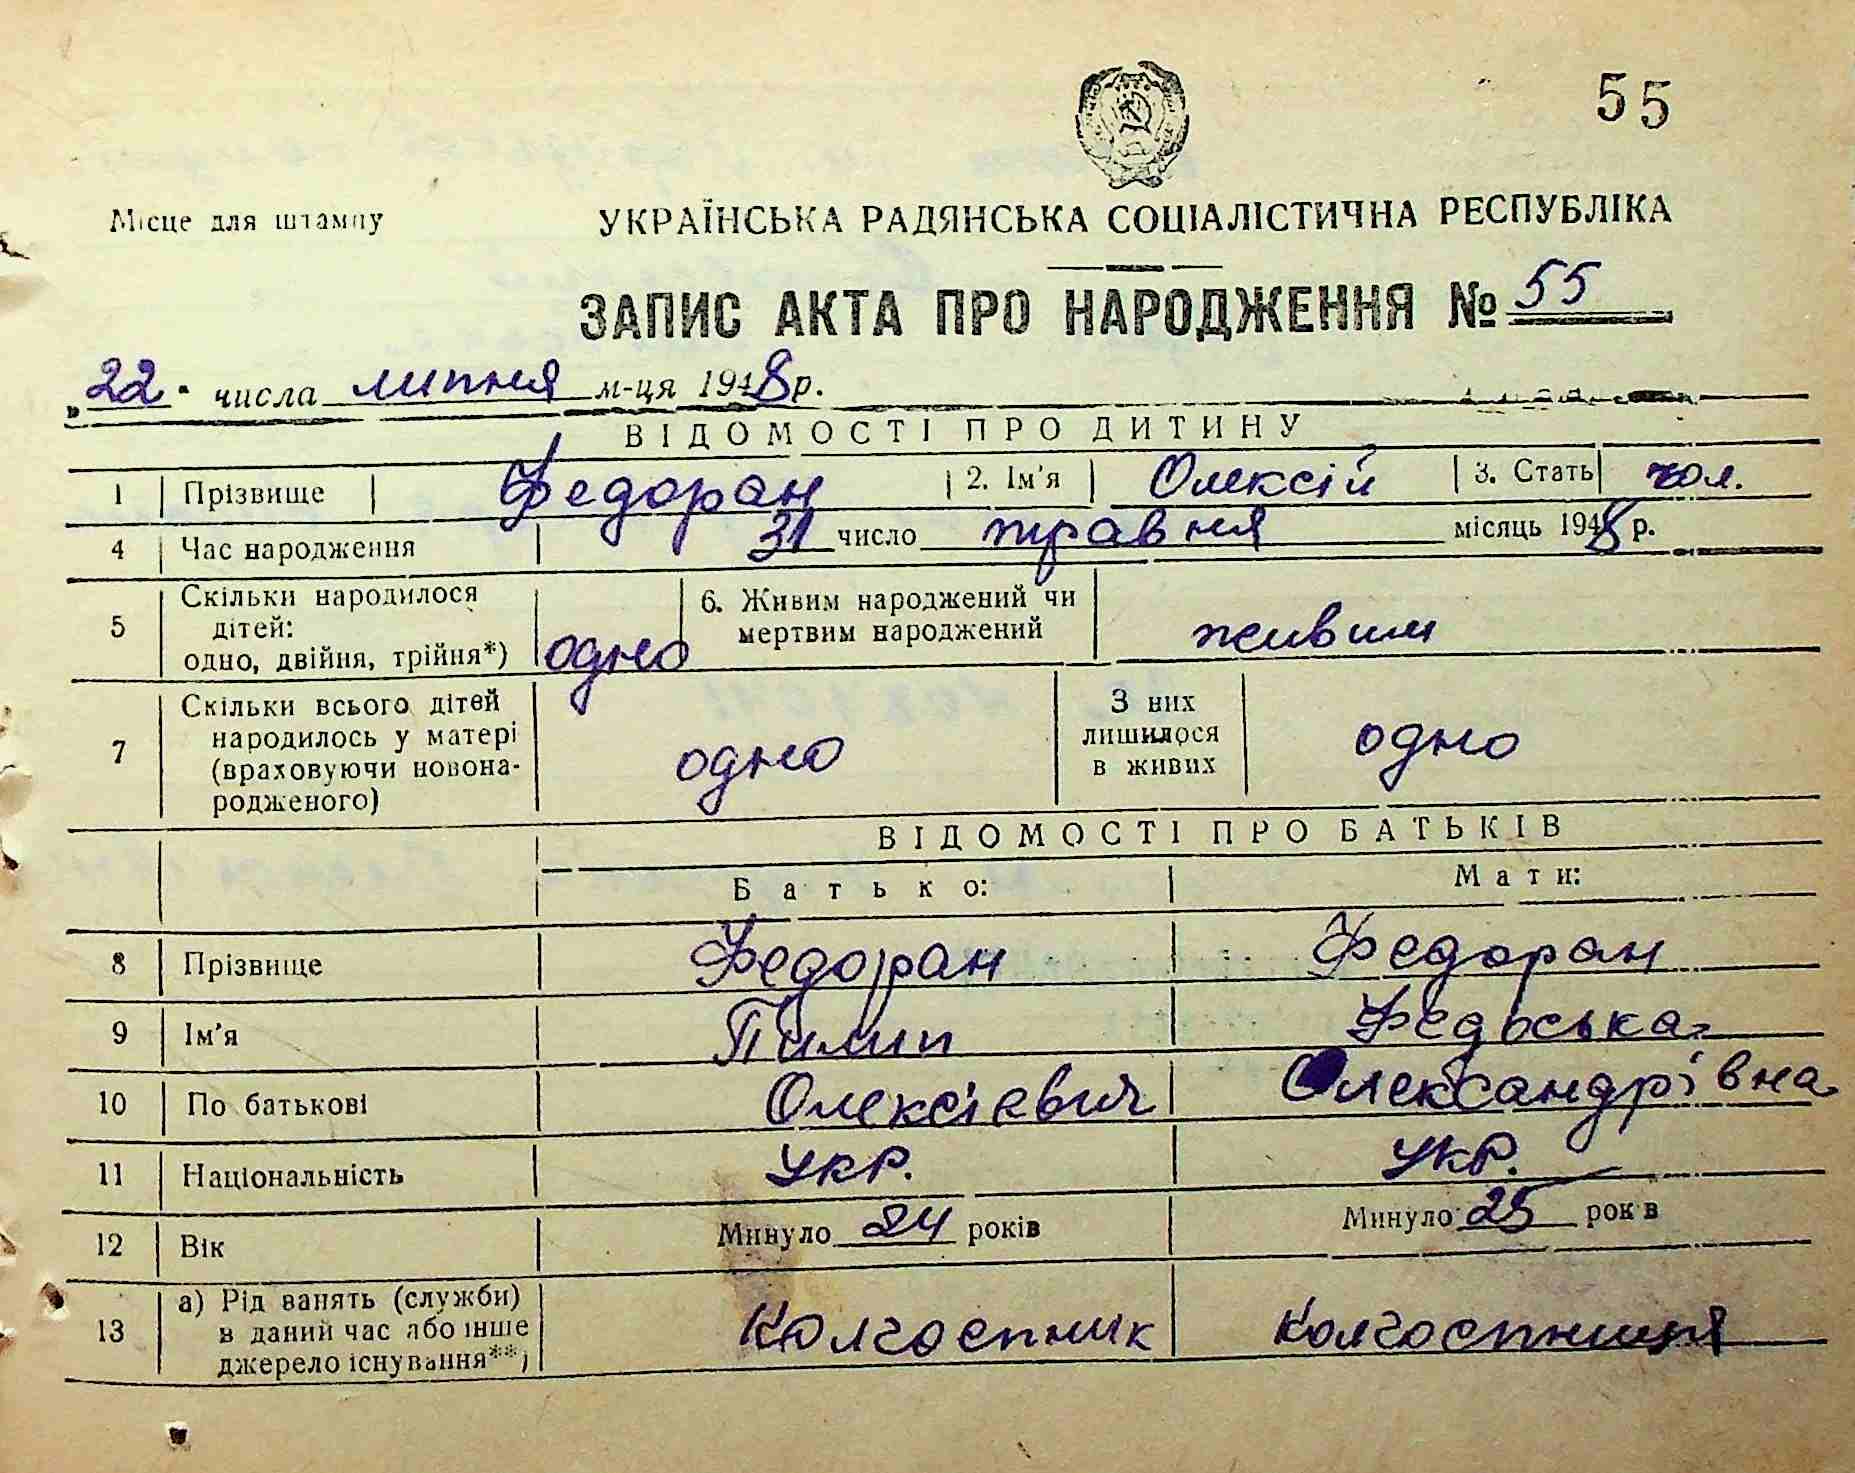 55
Місце для штампу
УКРАЇНСЬКА РАДЯНСЬКА СОЦІАЛІСТИЧНА РЕСПУБЛІКА
ЗАПИС АКТА ПРО НАРОДЖЕННЯ № 55
„22" числа липня м-ця 1948 р.
ВІДОМОСТІ ПРО ДИТИНУ
1 Прізвище Федоран 2. Ім'я Олексій 3. Стать чол.
4 Час народження 31 число травня місяць 1948 р.
5 Скільки народилося дітей: одно, двійня, трійня*) одно 6. Живим народжений чи мертвим народжений живим
7 Скільки всього дітей народилось у матері (враховуючи новона-родженого) одно З них лишилося в живих одно
ВІДОМОСТІ ПРО БАТЬКІВ
Батько: Мати:
8 Прізвище Федоран Федоран
9 Ім'я Пилип Федоська
10 По батькові Олексієвич Олександрівна
11 Національність укр. укр.
12 Вік Минуло 24 років Минуло 25 років
13 а) Рід занять (служби) в даний час або інше джерело існування**) Колгоспник Колгоспниця